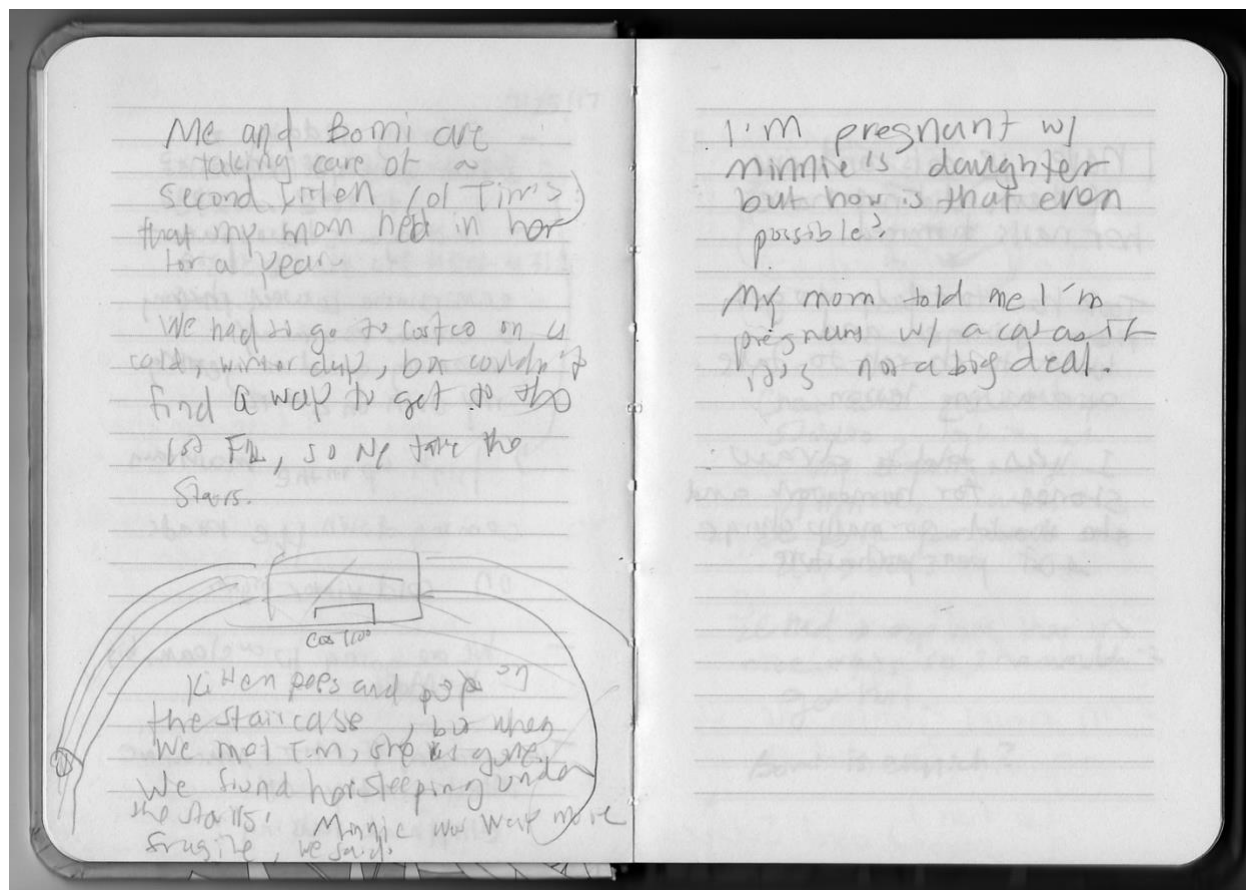 Me and Bomi are
taking care of a
second kitten (of Tim's)
that my mom held in her
for a year.
We had to go to costco on a
cold, winter day, but couldn't
find a way to get to the
1st Flr, so we take the
stairs.
Costco
Kitten pees and poops on
the staircase, but when
we met Tim, she is gone.
We found her sleeping under
the stairs. Minnie was way more
fragile, he said.
I'm pregnant w/
Minnie's daughter
but how is that even
possible?
My mom told me I'm
pregnant w/ a cat as if
it's not a big deal.